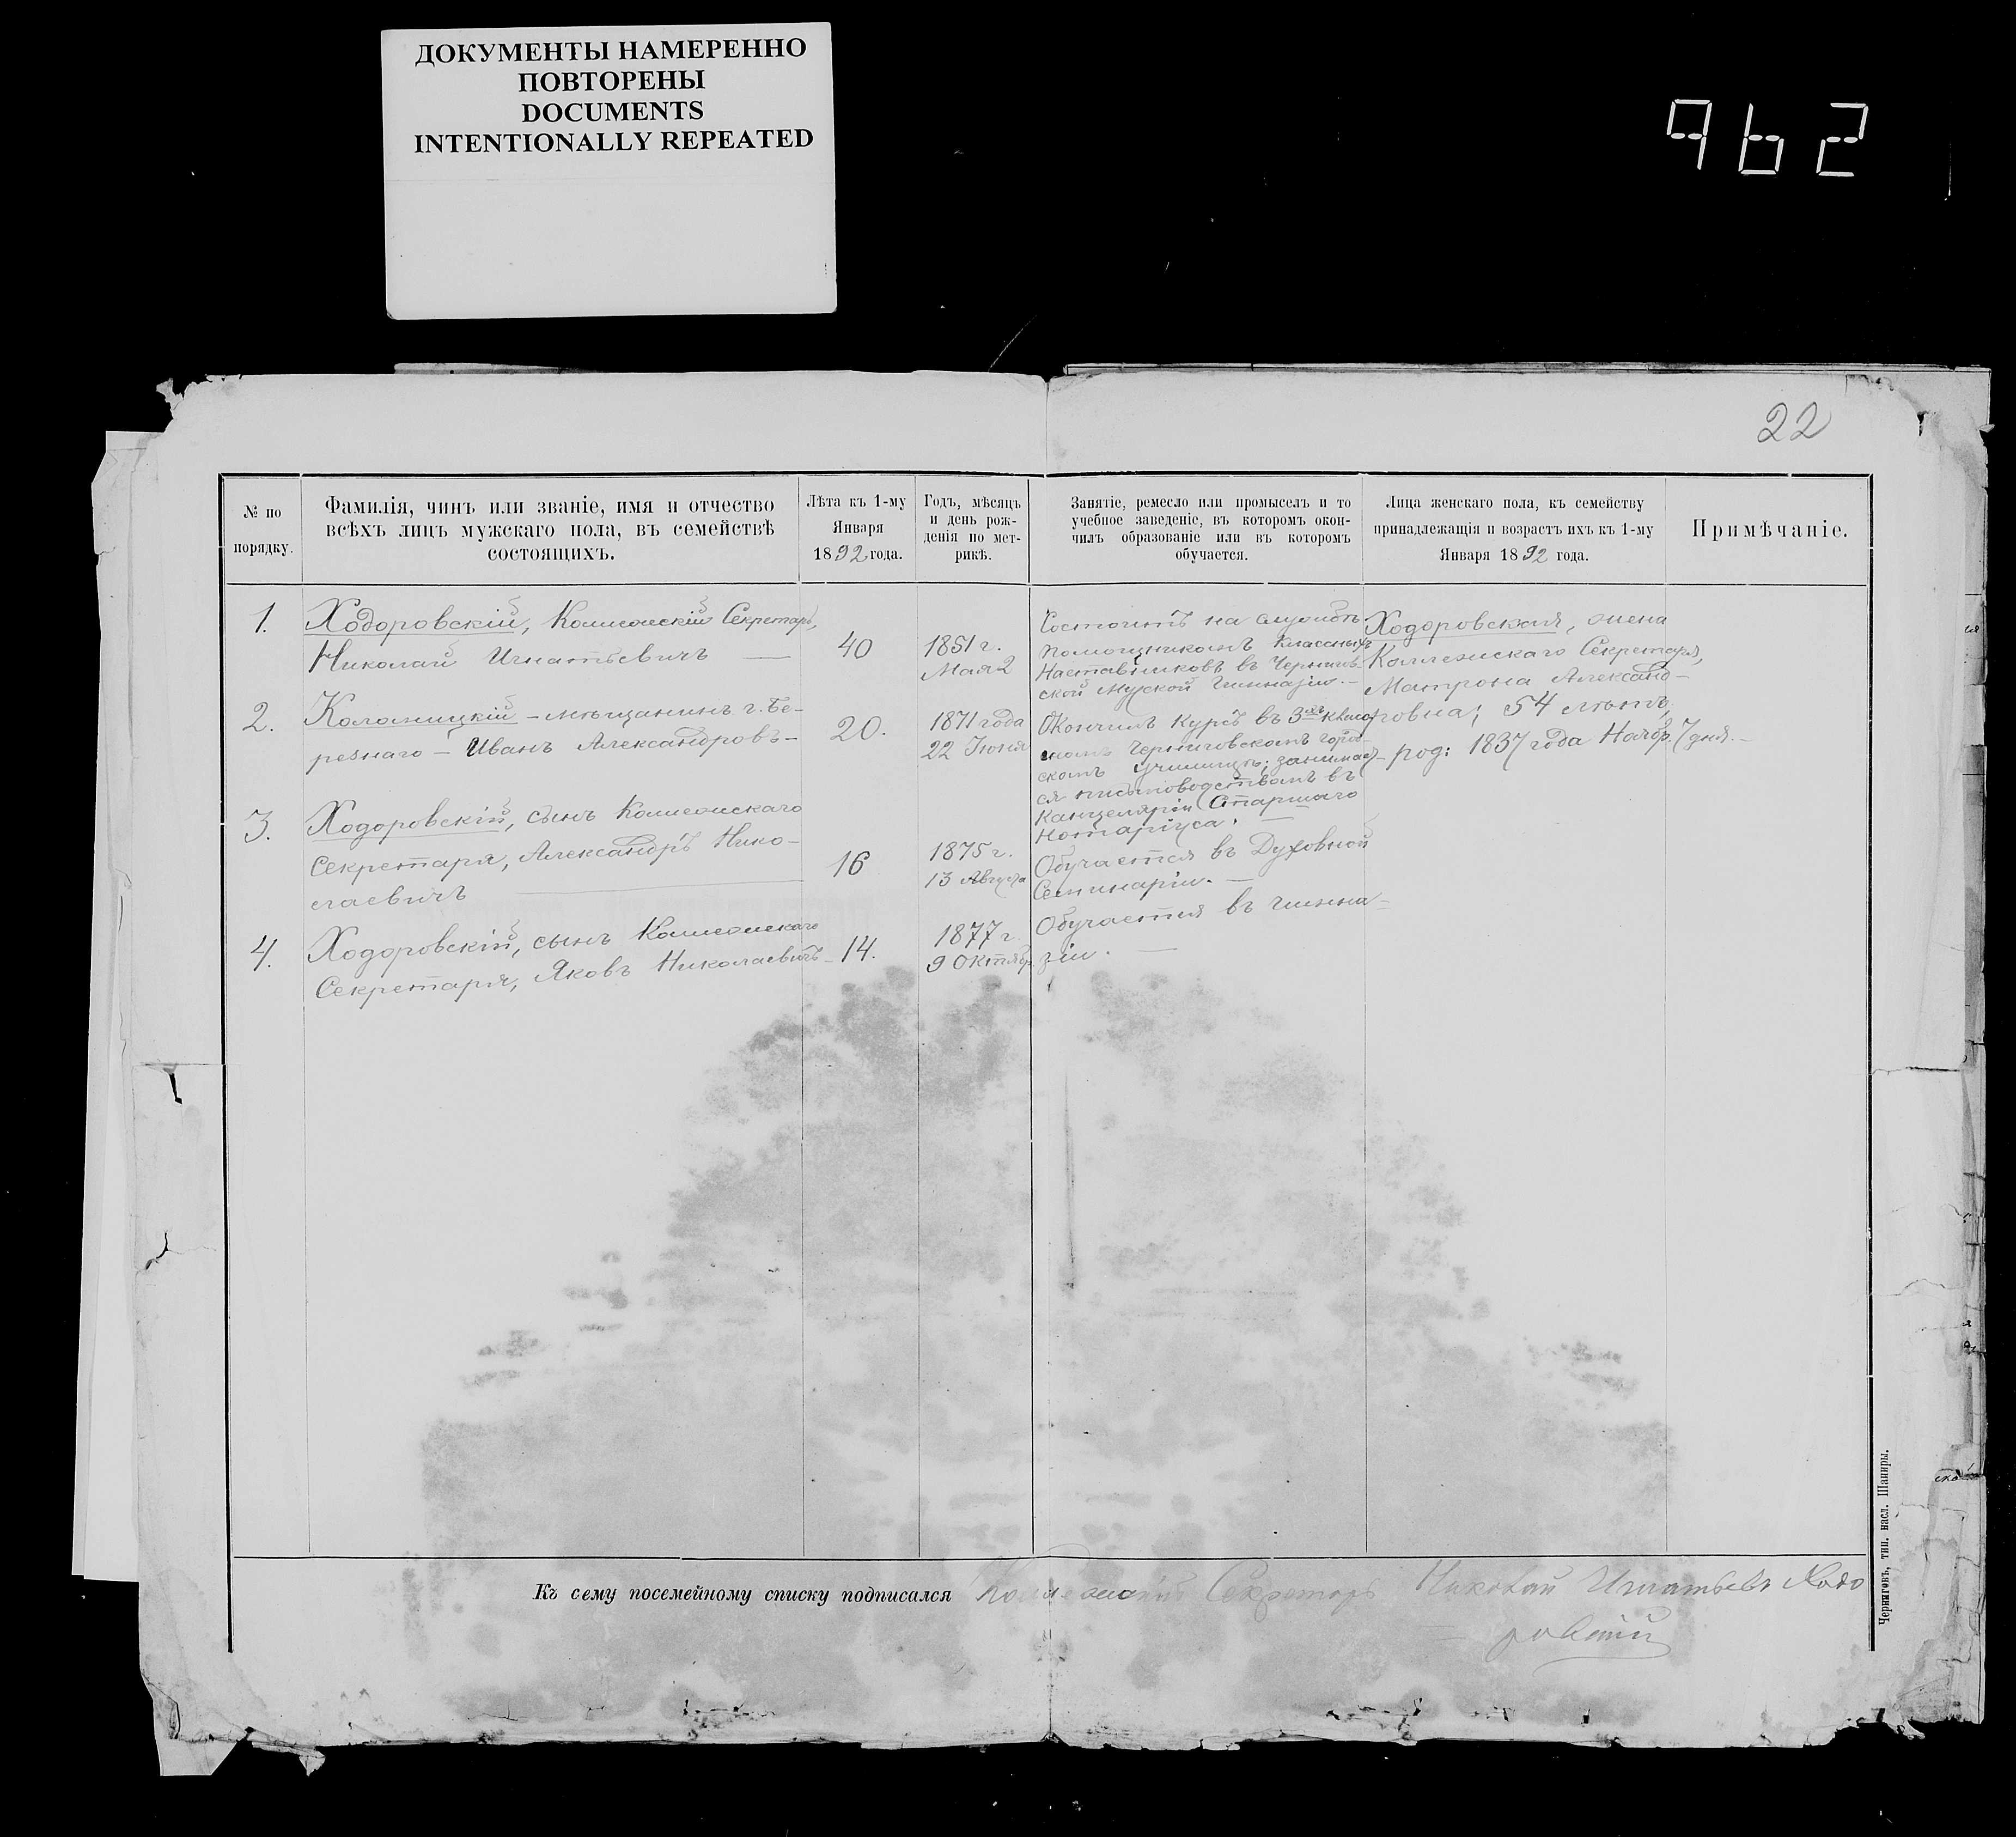 ДОКУМЕНТЫ НАМЕРЕННО
ПОВТОРЕНЫ
DOCUMENTS
INTENTIONALLY REPEATED
962
22
№ по
порядку.
Фамилія, чинъ или званіе, имя и отчество
всѣхъ лицъ мужскаго пола, въ семействѣ
состоящихъ.
Лѣта къ 1-му
Января
1892 года.
Годъ, мѣсяцъ
и день рож-
денія по мет-
рикѣ.
Занятіе, ремесло или промыселъ и то
учебное заведеніе, въ которомъ окон-
чилъ образованіе или въ которомъ
обучается.
Лица женскаго пола, къ семейству
принадлежащія и возрастъ ихъ къ 1-му
Января 1892 года.
Примѣчаніе.
1.
Ходоровскій, Коллежскій Секретарь,
Николай Игнатьевичъ —
40
1851 г.
Мая 2
Состоитъ на службѣ
помощникомъ Классныхъ
Наставниковъ въ Чернигов-
ской Мужской Гимназіи. —
Ходоровская, жена
Коллежскаго Секретаря,
Матрона Александ-
ровна; 54 лѣтъ,
род: 1837 года Ноябр. 7 дня. —
2.
Коломицкій — мѣщанинъ г. Бе-
резнаго — Иванъ Александровъ —
20.
1871 года
22 Іюня
Окончилъ курсъ въ 3хъ класс-
номъ Черниговскомъ город-
скомъ училищѣ; занимает-
ся письмоводствомъ въ
Канцеляріи Старшаго
Нотаріуса. —
3.
Ходоровскій, сынъ Коллежскаго
Секретаря, Александръ Нико-
лаевичъ
16
1875 г.
13 Августа
Обучается въ Духовной
Семинаріи. —
4.
Ходоровскій, сынъ Коллежскаго
Секретаря, Яковъ Николаевичъ —
14.
1877 г.
9 Октябр.
Обучается въ гимна-
зіи. —
Къ сему посемейному списку подписался Коллежскій Секретарь Николай Игнатьевъ Ходо
ровскій
Черниговъ, тип. насл. Шапиры.